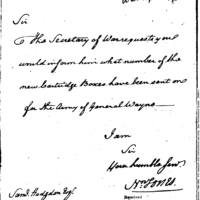 Sir
The Secretary of War requests you
would inform him what number of the
new Cartridge Boxes have been sent on
for the Army of General Wayne.
I am
Sir
Your humble Serv.
Saml. Hodgdon Esqr.